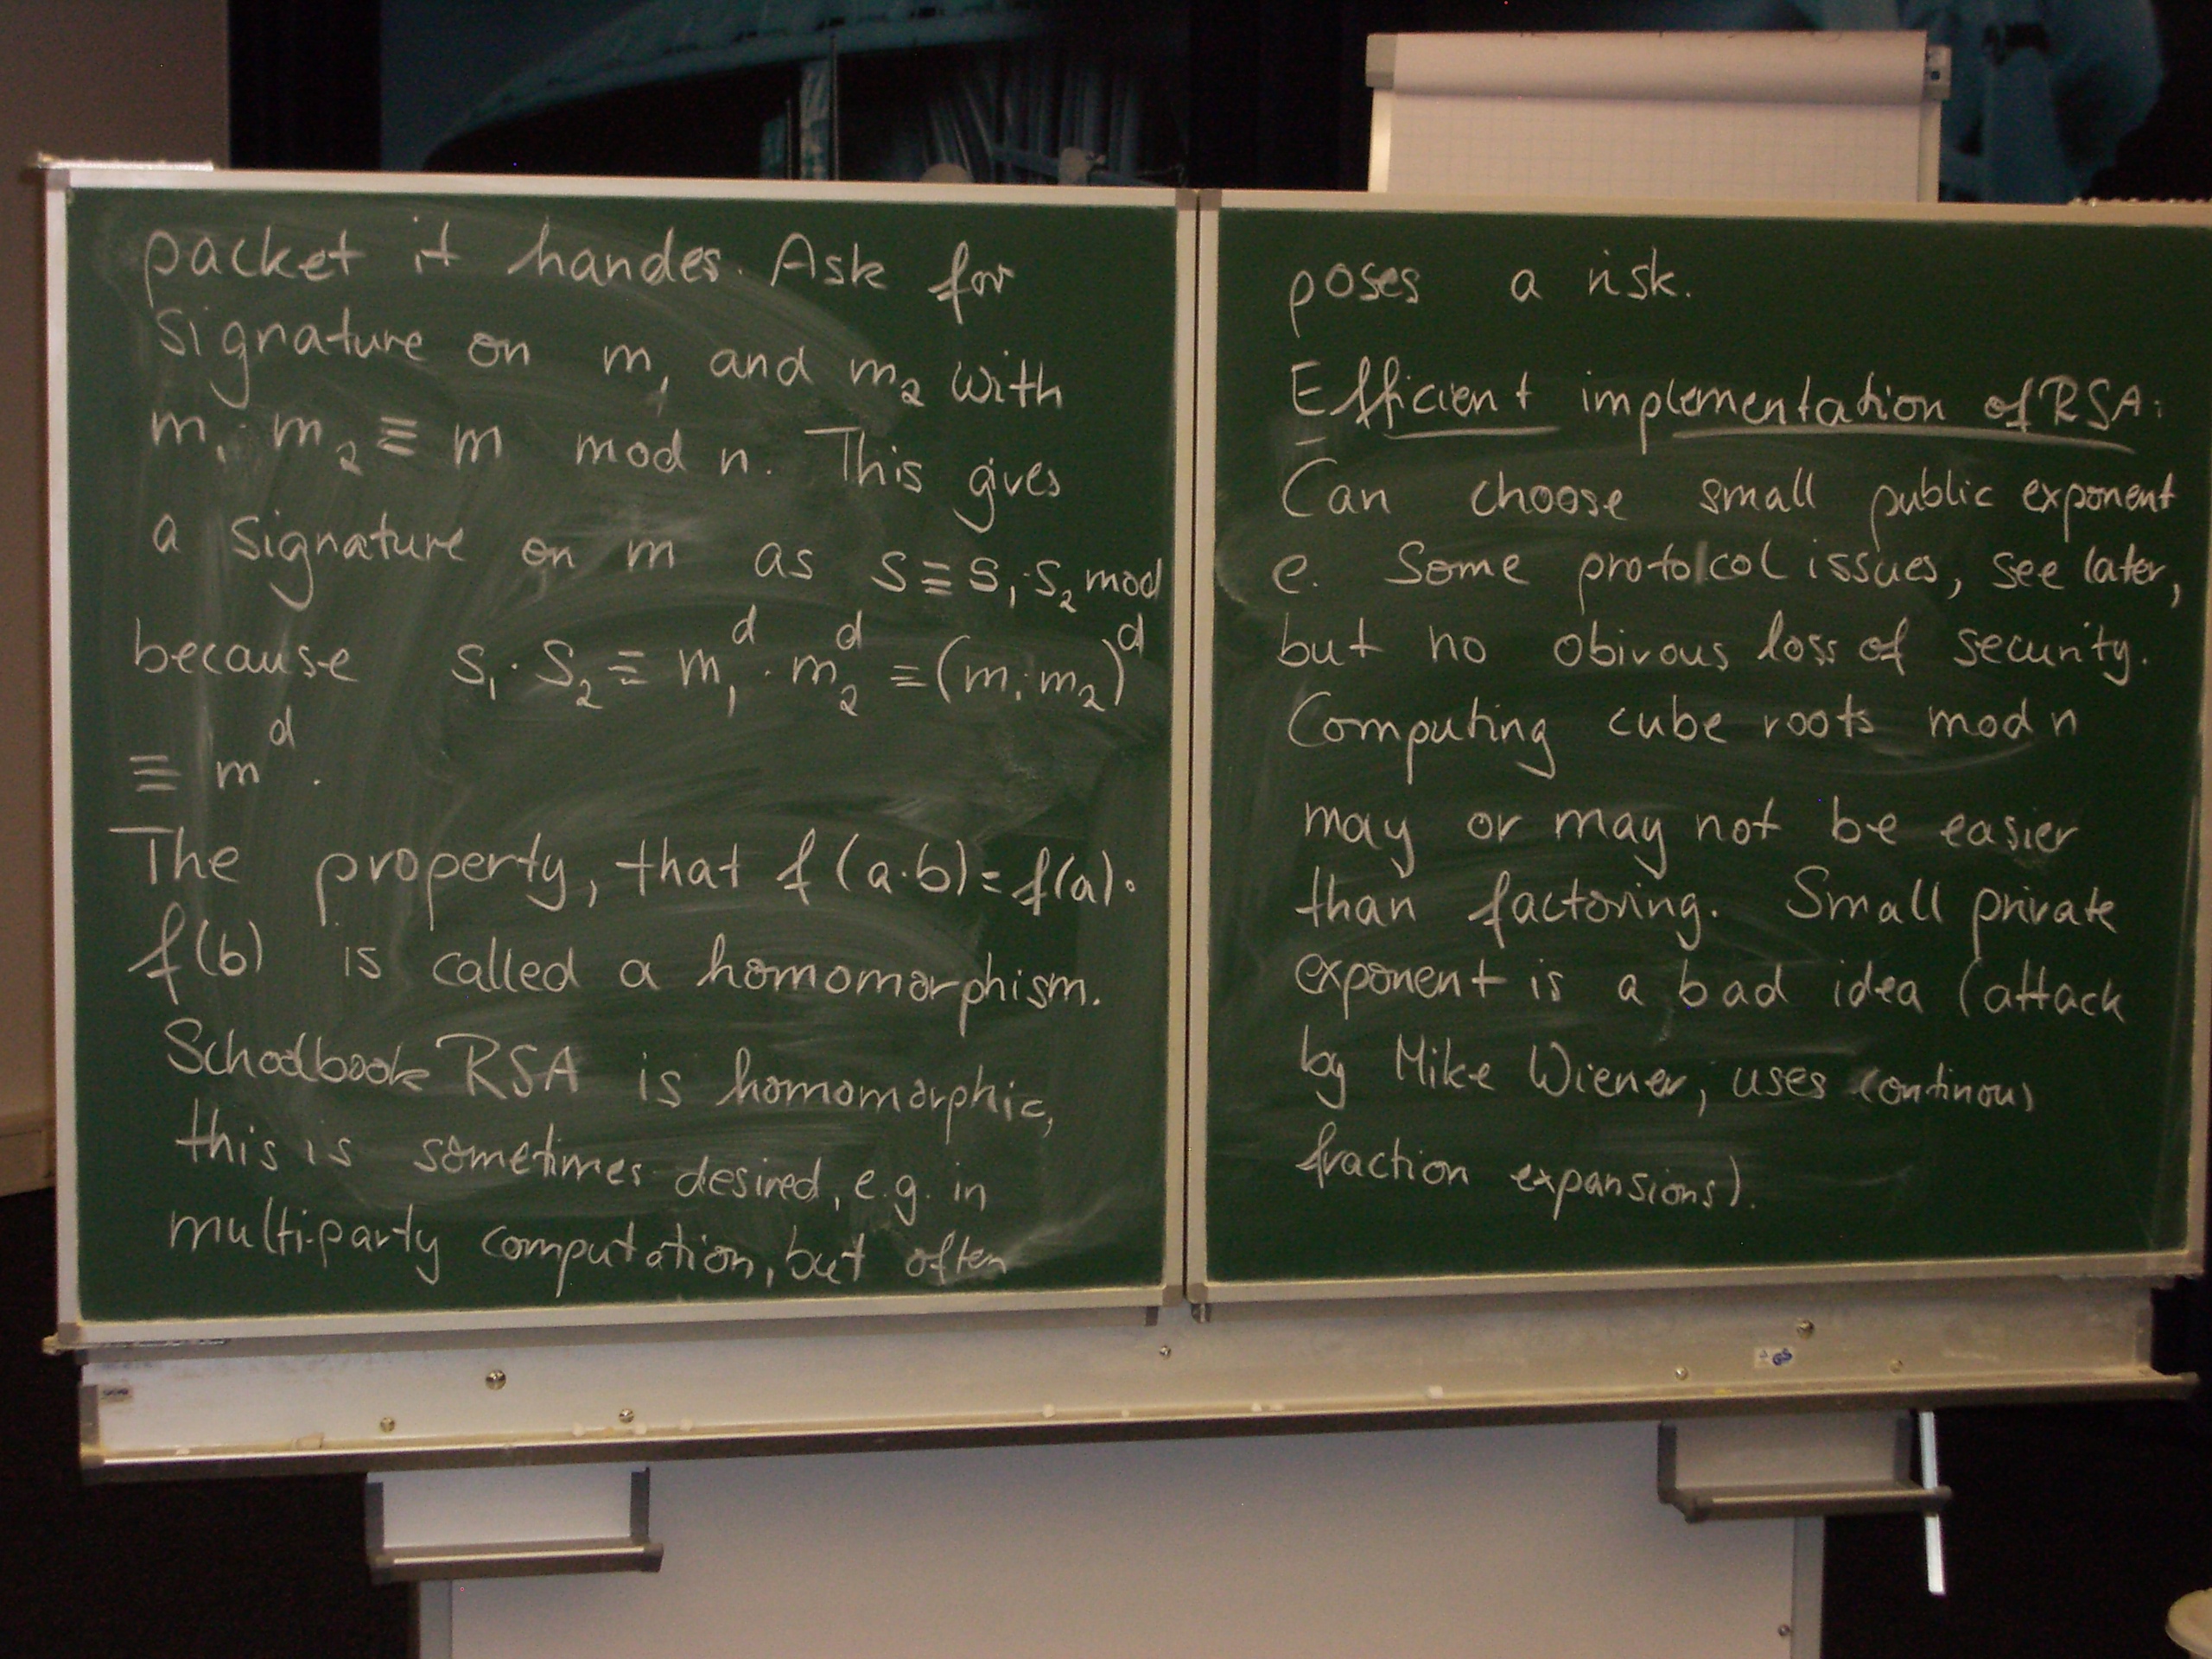 packet it handes. Ask for
Signature on m₁ and m₂ with
m₁·m₂ ≡ m mod n. This gives
a signature on m as s ≡ s₁·s₂ mod
because s₁·s₂ ≡ m₁^d·m₂^d ≡ (m₁·m₂)^d
≡ m^d.
The property, that f(a·b)=f(a)·
f(b) is called a homomorphism.
Schoolbook RSA is homomorphic,
this is sometimes desired, e.g. in
multi-party computation, but often
poses a risk.
Efficient implementation of RSA:
Can choose small public exponent
e. Some protolcol issues, see later,
but no obivous loss of security.
Computing cube roots mod n
may or may not be easier
than factoring. Small private
exponent is a bad idea (attack
by Mike Wiener, uses continous
fraction expansions).